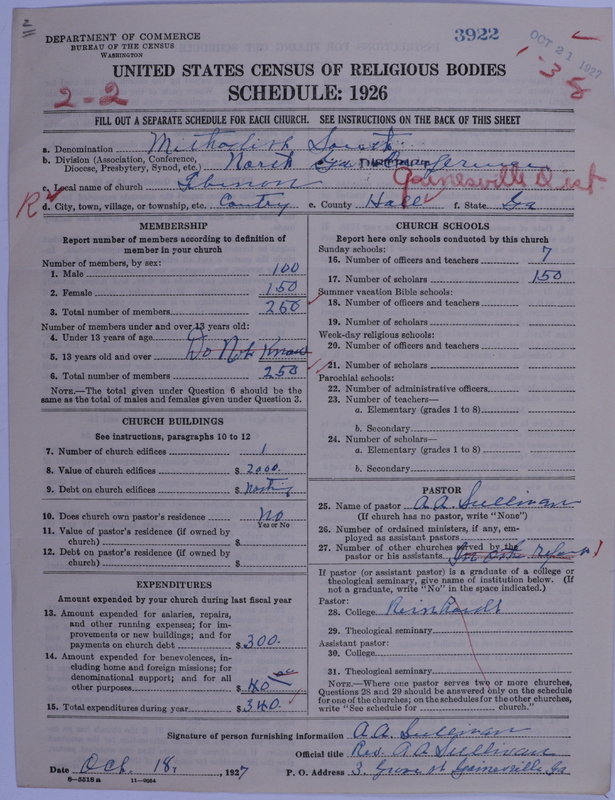 2
DEPARTMENT OF COMMERCE
BUREAU OF THE CENSUS
WASHINGTON
3922
OCT 21 1927
1-38
UNITED STATES CENSUS OF RELIGIOUS BODIES
2-2
SCHEDULE: 1926
FILL OUT A SEPARATE SCHEDULE FOR EACH CHURCH. SEE INSTRUCTIONS ON THE BACK OF THIS SHEET
a. Denomination Methodist South
b. Division (Association, Conference, Diocese, Presbytery, Synod, etc.) North
Gainesville Dist
c. Local name of church
R
d. City, town, village, or township, etc. Contry e. County Hall f. State Ga
MEMBERSHIP
Report number of members according to definition of
member in your church
Number of members, by sex:
1. Male 100
2. Female 150
3. Total number of members 250
Number of members under and over 13 years old:
4. Under 13 years of age
Do Not Know
5. 13 years old and over
6. Total number of members 250
NOTE.—The total given under Question 6 should be the
same as the total of males and females given under Question 3.
CHURCH BUILDINGS
See instructions, paragraphs 10 to 12
7. Number of church edifices 1
8. Value of church edifices $ 2000.
9. Debt on church edifices $ Nothing
10. Does church own pastor's residence No
Yes or No
11. Value of pastor's residence (if owned by
church) $
12. Debt on pastor's residence (if owned by
church) $
EXPENDITURES
Amount expended by your church during last fiscal year
13. Amount expended for salaries, repairs,
and other running expenses; for im-
provements or new buildings; and for
payments on church debt $ 300.
14. Amount expended for benevolences, in-
cluding home and foreign missions; for
denominational support; and for all
other purposes $ 40
15. Total expenditures during year $ 340.
CHURCH SCHOOLS
Report here only schools conducted by this church
Sunday schools:
16. Number of officers and teachers 7
17. Number of scholars 150
Summer vacation Bible schools:
18. Number of officers and teachers
19. Number of scholars
Week-day religious schools:
20. Number of officers and teachers
21. Number of scholars
Parochial schools:
22. Number of administrative officers
23. Number of teachers—
a. Elementary (grades 1 to 8)
b. Secondary
24. Number of scholars—
a. Elementary (grades 1 to 8)
b. Secondary
PASTOR
25. Name of pastor A. A. Sullivan
(If church has no pastor, write "None")
26. Number of ordained ministers, if any, em-
ployed as assistant pastors
27. Number of other churches served by the
pastor or his assistants
If pastor (or assistant pastor) is a graduate of a college or
theological seminary, give name of institution below. (If
not a graduate, write "No" in the space indicated.)
Pastor:
28. College Reinhardt
29. Theological seminary
Assistant pastor:
30. College
31. Theological seminary
NOTE.—Where one pastor serves two or more churches,
Questions 28 and 29 should be answered only on the schedule
for one of the churches; on the schedules for the other churches,
write "See schedule for church."
Signature of person furnishing information A. A. Sullivan
Official title Rev. A A Sullivan
Date Oct. 18, 1927 P. O. Address 3. Grove st Gainesville, Ga
8-5518a 11-9054